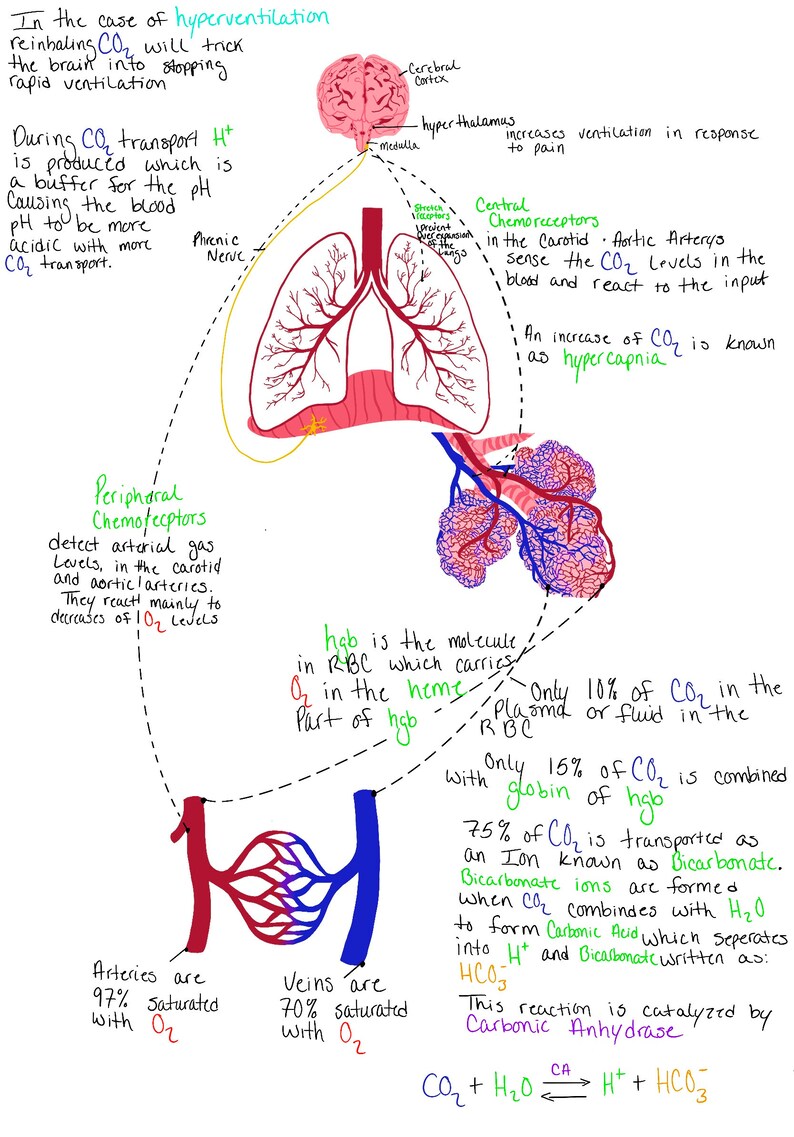 In the case of hyperventilation
reinhaling CO₂ will trick
the brain into stopping
rapid ventilation
During CO₂ transport H⁺
is produced which is
a buffer for the pH
Causing the blood
pH to be more
acidic with more
CO₂ transport.
Cerebral
Cortex
hyperthalamus
medulla
increases ventilation in response
to pain
Phrenic
Nerve
Stretch
receptors
prevent
overexpansion
of the
lungs
Central
Chemoreceptors
in the Carotid · Aortic Arterys
sense the CO₂ Levels in the
blood and react to the input
An increase of CO₂ is known
as hypercapnia
Peripheral
Chemorecptors
detect arterial gas
Levels, in the carotid
and aortic arteries.
They react mainly to
decreases of O₂ Levels
hgb is the molecule
in RBC which carries
O₂ in the heme
Part of hgb
Only 10% of CO₂ in the
Plasma or fluid in the
RBC
Only 15% of CO₂ is combined
with globin of hgb
75% of CO₂ is transported as
an Ion known as Bicarbonate.
Bicarbonate ions are formed
when CO₂ combindes with H₂O
to form Carbonic Acid which seperates
into H⁺ and Bicarbonate written as:
HCO₃⁻
This reaction is catalyzed by
Carbonic Anhydrase
CA
CO₂ + H₂O ⇌ H⁺ + HCO₃⁻
Arteries are
97% saturated
with O₂
Veins are
70% saturated
with O₂